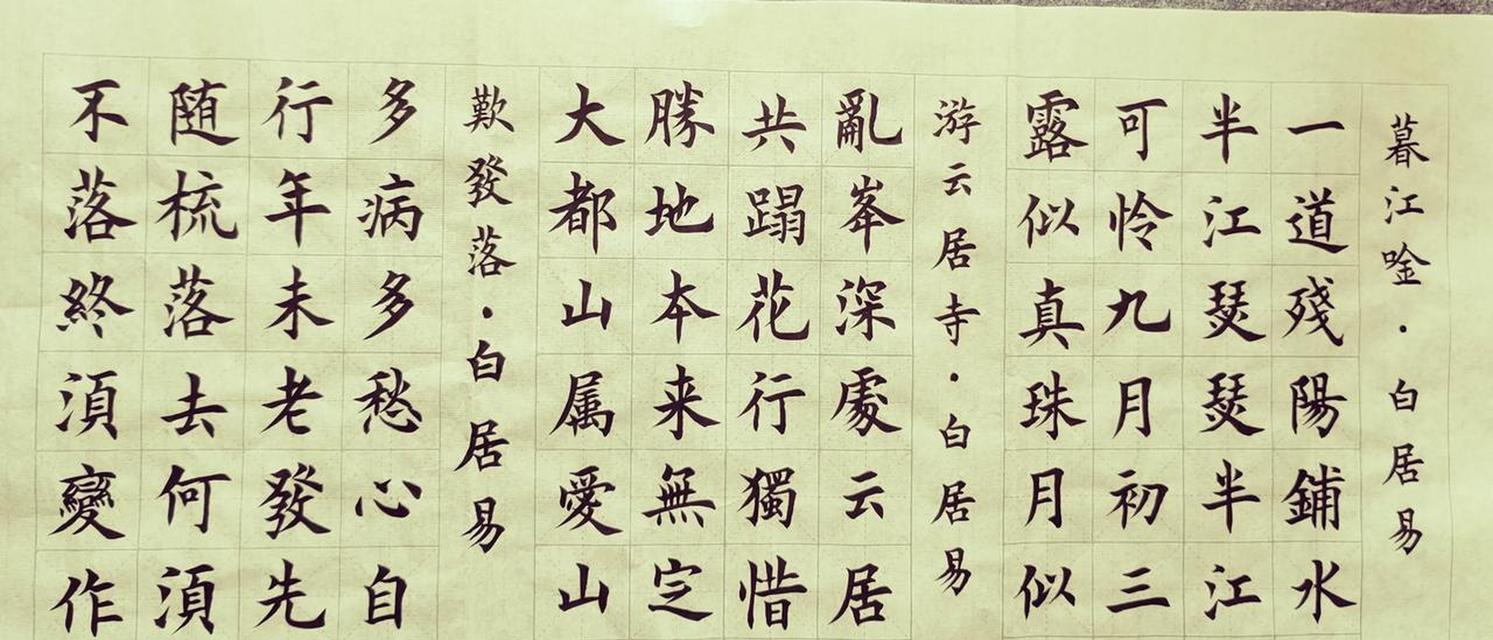 暮江唫·白居易
一道殘陽鋪水
半江瑟瑟半江
可怜九月初三
露似真珠月似
游云居寺·白居易
亂峯深處云居
共蹋花行獨惜
勝地本来無定
大都山属愛山
歎發落·白居易
多病多愁心自
行年未老發先
随梳落去何湏
不落終湏變作